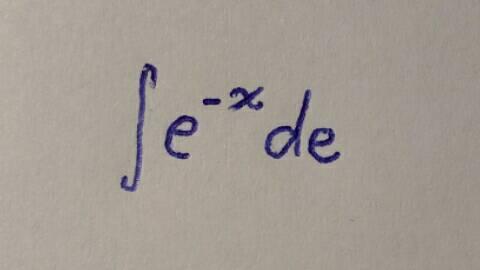 ∫e^{-x}de